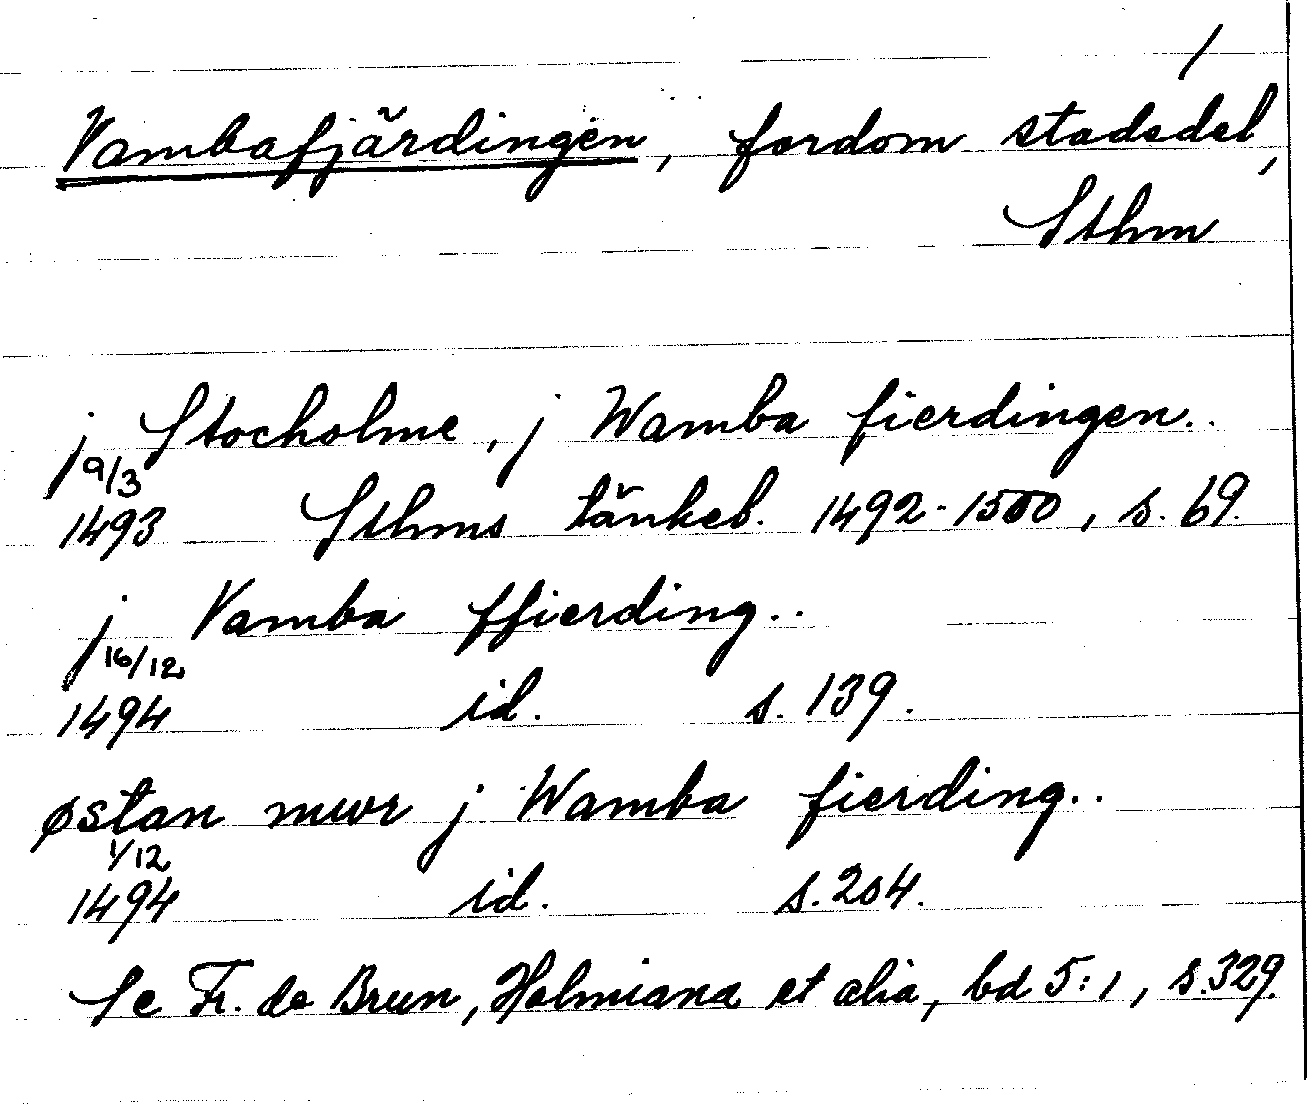 /
Vambafjärdingen, fordom stadsdel,
Sthm
j Stocholme, j Wamba fierdingen..
9/3
1493 Sthms tänkeb. 1492-1500, s. 69.
j Vamba ffierding..
16/12
1494 id. s. 139.
østan mwr j Wamba fierding..
1/12
1494 id. s. 204.
Se Fr. de Brun, Holmiana et alia, bd 5:1, s. 329.